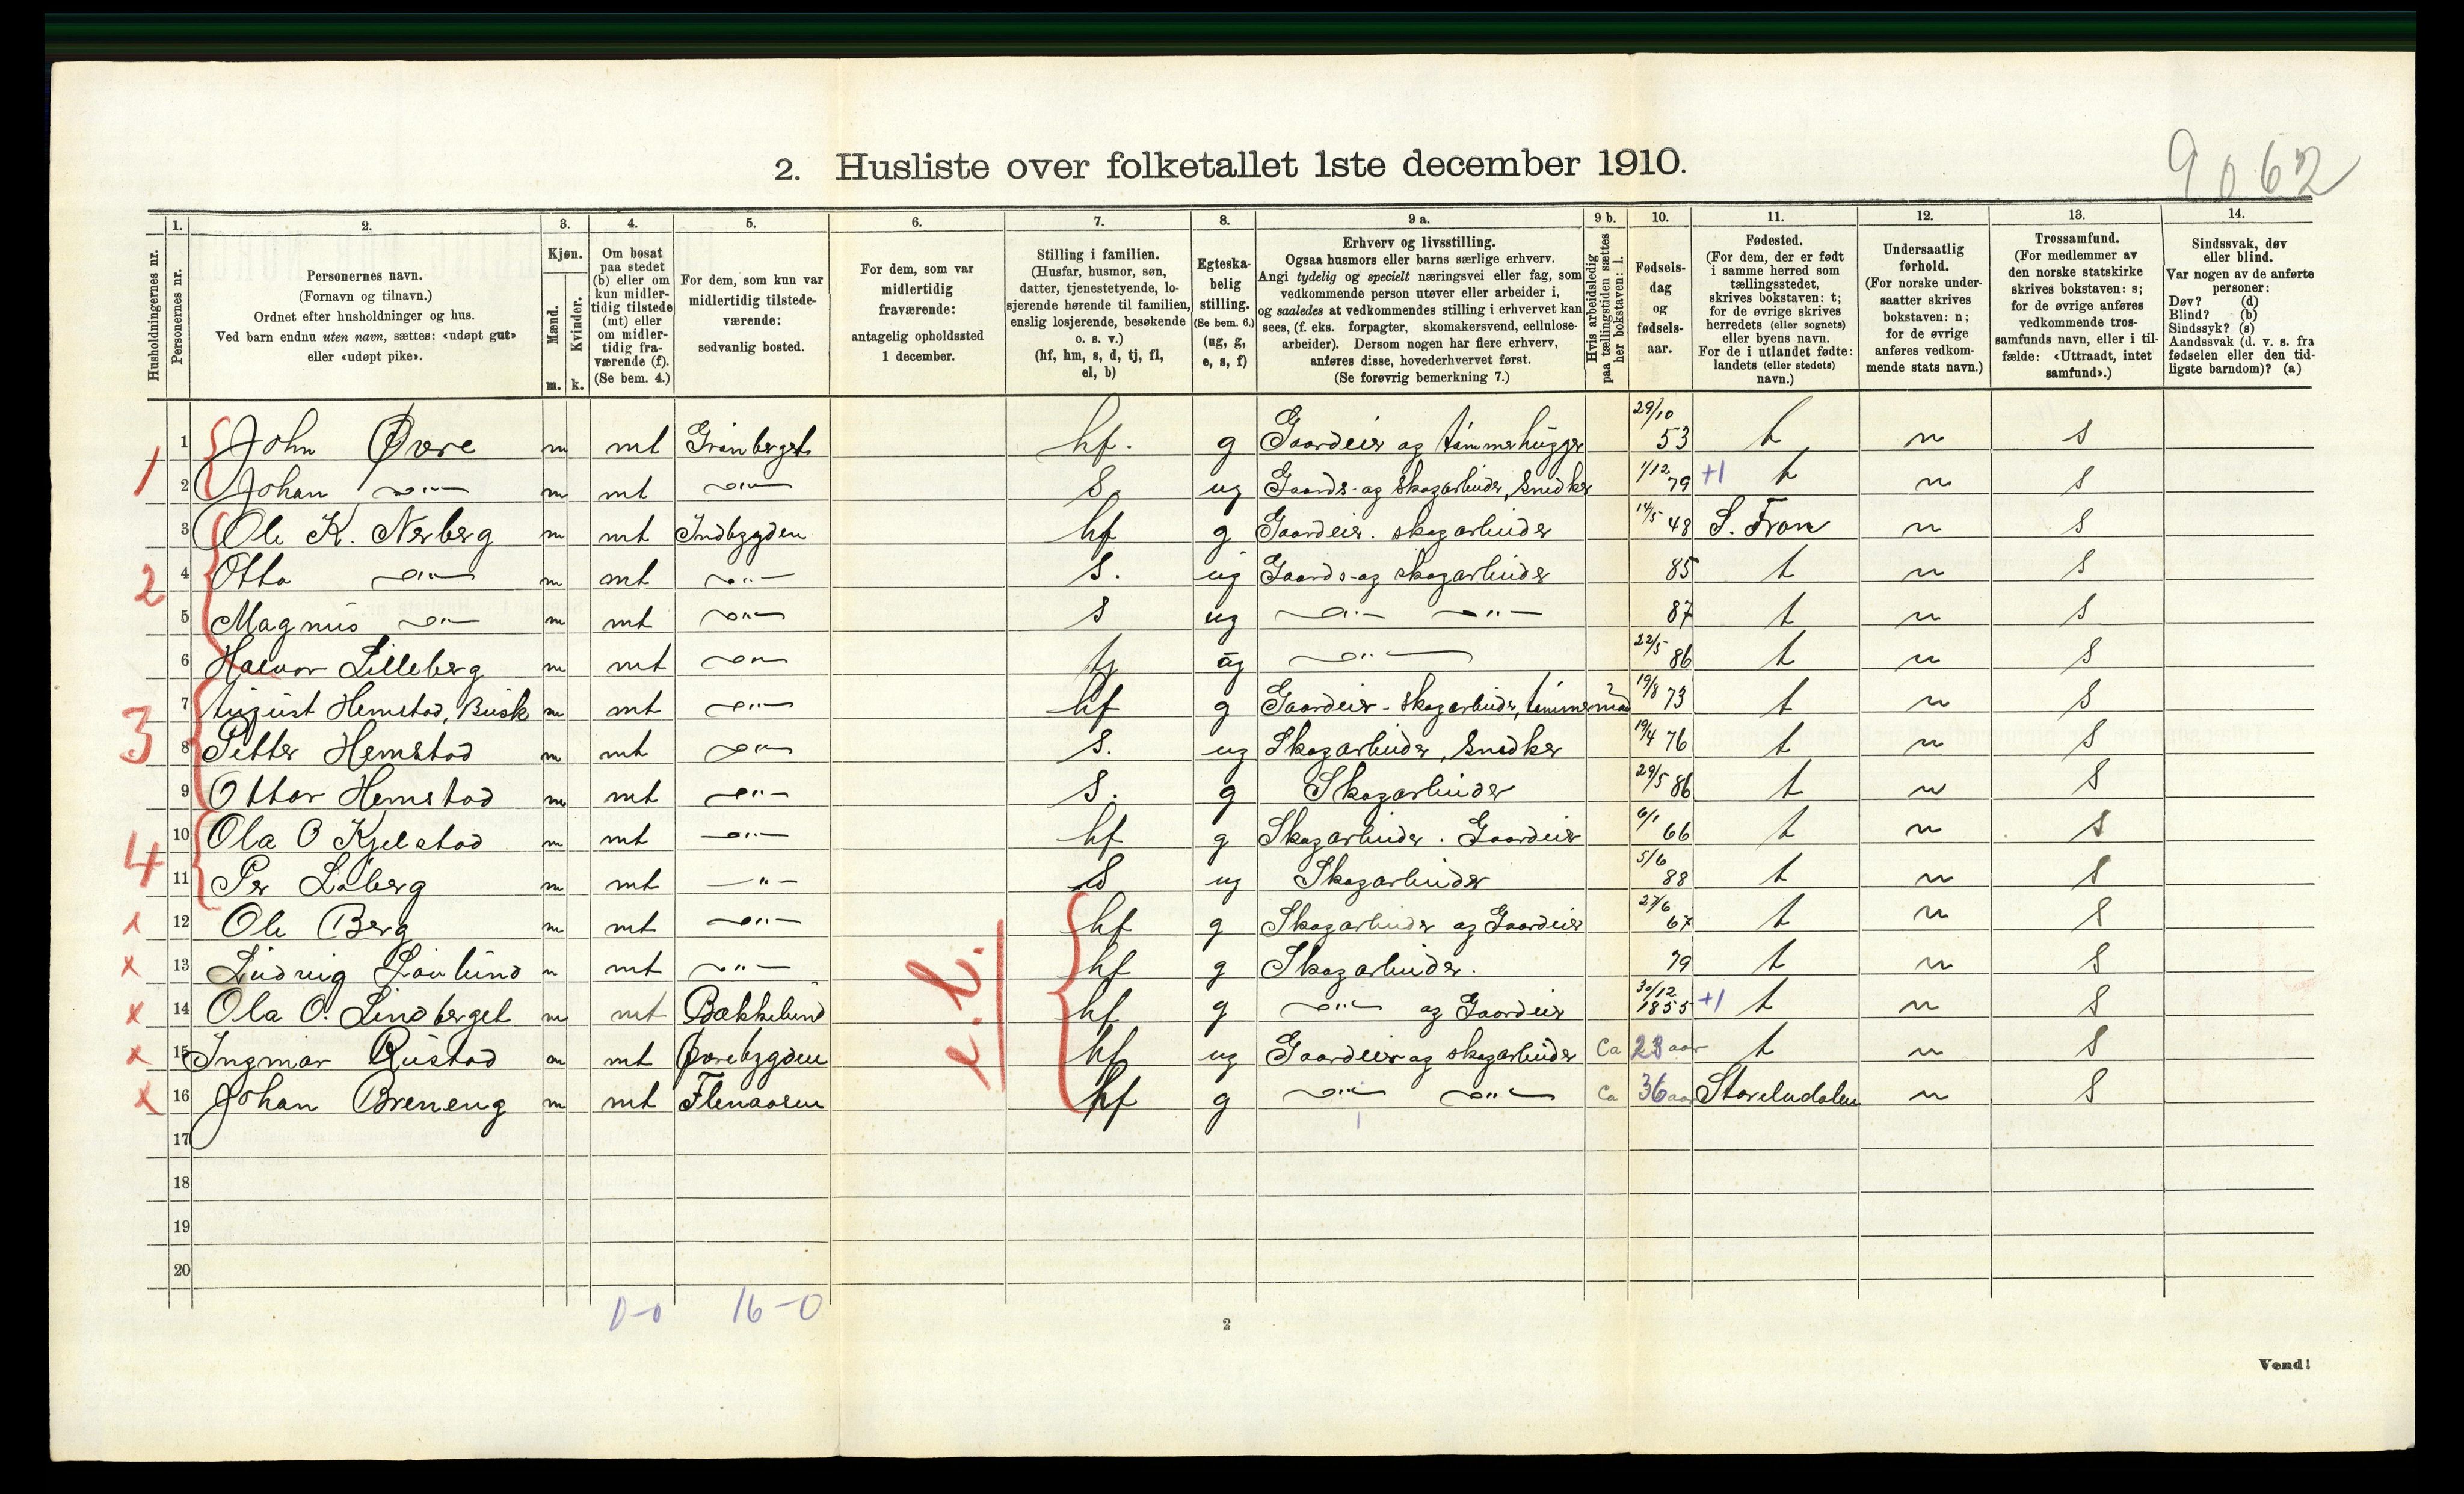 9062
2. Husliste over folketallet 1ste december 1910.
Husholdningernes nr.
1. Personernes nr.
2. Personernes navn. (Fornavn og tilnavn.) Ordnet efter husholdninger og hus. Ved barn endnu uten navn, sættes: «udøpt gut» eller «udøpt pike».
3. Kjøn. Mænd. m. Kvinder. k.
4. Om bosat paa stedet (b) eller om kun midlertidig tilstede (mt) eller om midlertidig fraværende (f). (Se bem. 4.)
5. For dem, som kun var midlertidig tilstedeværende: sedvanlig bosted.
6. For dem, som var midlertidig fraværende: antagelig opholdssted 1 december.
7. Stilling i familien. (Husfar, husmor, søn, datter, tjenestetyende, losjerende hørende til familien, enslig losjerende, besøkende o. s. v.) (hf, hm, s, d, tj, fl, el, b)
8. Egteskabelig stilling. (Se bem. 6.) (ug, g, e, s, f)
9 a. Erhverv og livsstilling. Ogsaa husmors eller barns særlige erhverv. Angi tydelig og specielt næringsvei eller fag, som vedkommende person utøver eller arbeider i, og saaledes at vedkommendes stilling i erhvervet kan sees, (f. eks. forpagter, skomakersvend, cellulosearbeider). Dersom nogen har flere erhverv, anføres disse, hovederhvervet først. (Se forøvrig bemerkning 7.)
9 b. Hvis arbeidsledig paa tællingstiden sættes her bokstaven: l.
10. Fødselsdag og fødselsaar.
11. Fødested. (For dem, der er født i samme herred som tællingsstedet, skrives bokstaven: t; for de øvrige skrives herredets (eller sognets) eller byens navn. For de i utlandet fødte: landets (eller stedets) navn.)
12. Undersaatlig forhold. (For norske undersaatter skrives bokstaven: n; for de øvrige anføres vedkommende stats navn.)
13. Trossamfund. (For medlemmer av den norske statskirke skrives bokstaven: s; for de øvrige anføres vedkommende trossamfunds navn, eller i tilfælde: «Uttraadt, intet samfund».)
14. Sindssvak, døv eller blind. Var nogen av de anførte personer: Døv? (d) Blind? (b) Sindssyk? (s) Aandssvak (d. v. s. fra fødselen eller den tidligste barndom)? (a)
1 1 John Øvre m mt Grånberget hf. g Gaardeier og tømmerhugger 29/10 53 t n s
2 Johan —"— m mt —"— s. ug Gaards- og skogarbeider, snedker 1/12 79 +1 t n s
2 3 Ole K. Nerberg m mt Indbygden hf g Gaardeier. skogarbeider 14/5 48 S. Fron n s
4 Otto —"— m mt —"— s. ug Gaards- og skogarbeider 85 t n s
5 Magnus —"— m mt —"— s ug —"— —"— 87 t n s
6 Halvor Lilleberg m mt —"— tj ug —"— 22/5 86 t n s
3 7 August Hemstad, Busk m mt —"— hf g Gaardeier - skogarbeider, tømmermand 19/8 73 t n s
8 Petter Hemstad m mt —"— s. ug Skogarbeider, snedker 19/4 76 t n s
9 Ottar Hemstad m mt —"— s. g Skogarbeider 29/5 86 t n s
4 10 Ola O Kjelstad m mt —"— hf g Skogarbeider. Gaardeier 6/1 66 t n s
11 Per Løberg m mt —"— s ug Skogarbeider 5/6 88 t n s
x 12 Ole Berg m mt —"— hf g Skogarbeider og Gaardeier 27/6 67 t n s
x 13 Ludvig Loulund m mt —"— hf g Skogarbeider. 79 t n s
x 14 Ola O. Lindberget m mt Bakkelund hf g —"— og Gaardeier 30/12 1855 +1 t n s
x 15 Ingmar Rustad m mt Øvrebygden hf ug Gaardeier og skogarbeider Ca 23 aar t n s
x 16 Johan Breneng m mt Flenaasen hf g —"— —"— Ca 36 aar Storelvdalen n s
e.l.
17
18
19
20
0-0 16-0
2
Vend!